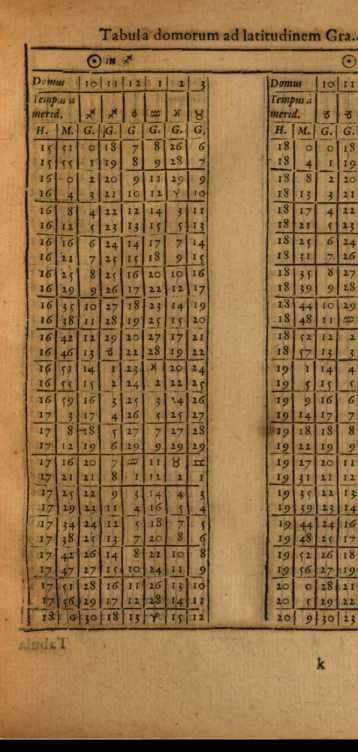 Tabula domorum ad latitudinem Gra..
☉ in ♐
Domus 10 11 12 1 2 3
Tempus a
merid. ♐ ♐ ♑ ♒ ♓ ♉
H. M. G. G. G G. G. G.
15 51 0 18 7 8 26 6
15 55 1 19 8 9 28 7
16 0 2 20 9 11 29 9
16 4 3 21 10 12 ♈ 10
16 8 4 22 12 14 3 11
16 12 5 23 13 15 5 13
16 16 6 24 14 17 7 14
16 21 7 25 15 18 9 15
16 25 8 25 16 20 10 16
16 29 9 26 17 22 12 17
16 35 10 27 18 23 14 19
16 38 11 28 19 25 15 20
16 42 12 29 20 27 17 21
16 46 13 ♑ 22 28 19 22
16 51 14 1 23 ♓ 20 24
16 55 15 2 24 2 22 25
16 59 16 3 25 3 24 26
17 3 17 4 26 5 25 27
17 8 18 5 27 7 27 28
17 12 19 6 29 9 29 29
17 16 20 7 ♒ 11 ♉ ♊
17 21 21 8 1 12 2 1
17 25 22 9 3 14 4 3
17 29 23 11 4 16 5 4
17 34 24 12 5 18 7 5
17 38 25 13 7 20 8 6
17 42 26 14 8 21 10 8
17 47 27 15 10 24 11 9
17 51 28 16 11 26 13 10
17 56 29 17 12 28 14 11
18 0 30 18 13 ♈ 15 12
☉
Domus 10 11
Tempus a
merid. ♑ ♑
H. M. G. G.
18 0 0 18
18 4 1 19
18 8 2 20
18 13 3 21
18 17 4 22
18 21 5 23
18 25 6 24
18 31 7 26
18 35 8 27
18 39 9 28
18 44 10 29
18 48 11 ♒
18 52 12 2
18 57 13 3
19 1 14 4
19 5 15 5
19 9 16 6
19 14 17 7
19 18 18 8
19 22 19 9
19 27 20 11
19 31 21 12
19 35 22 13
19 39 23 14
19 44 24 16
19 48 25 17
19 52 26 18
19 56 27 19
20 0 28 21
20 5 29 22
20 9 30 23
k